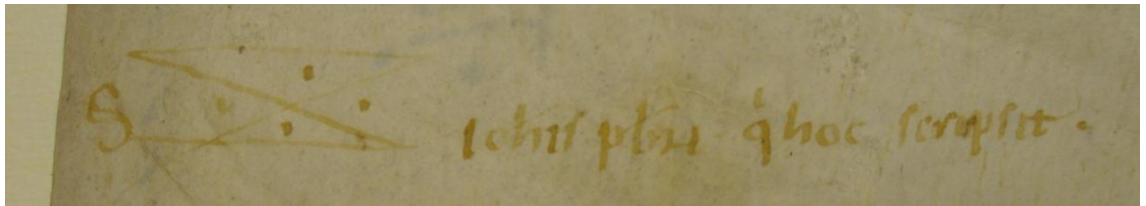 S Iohis pbri q hoc scripsit.